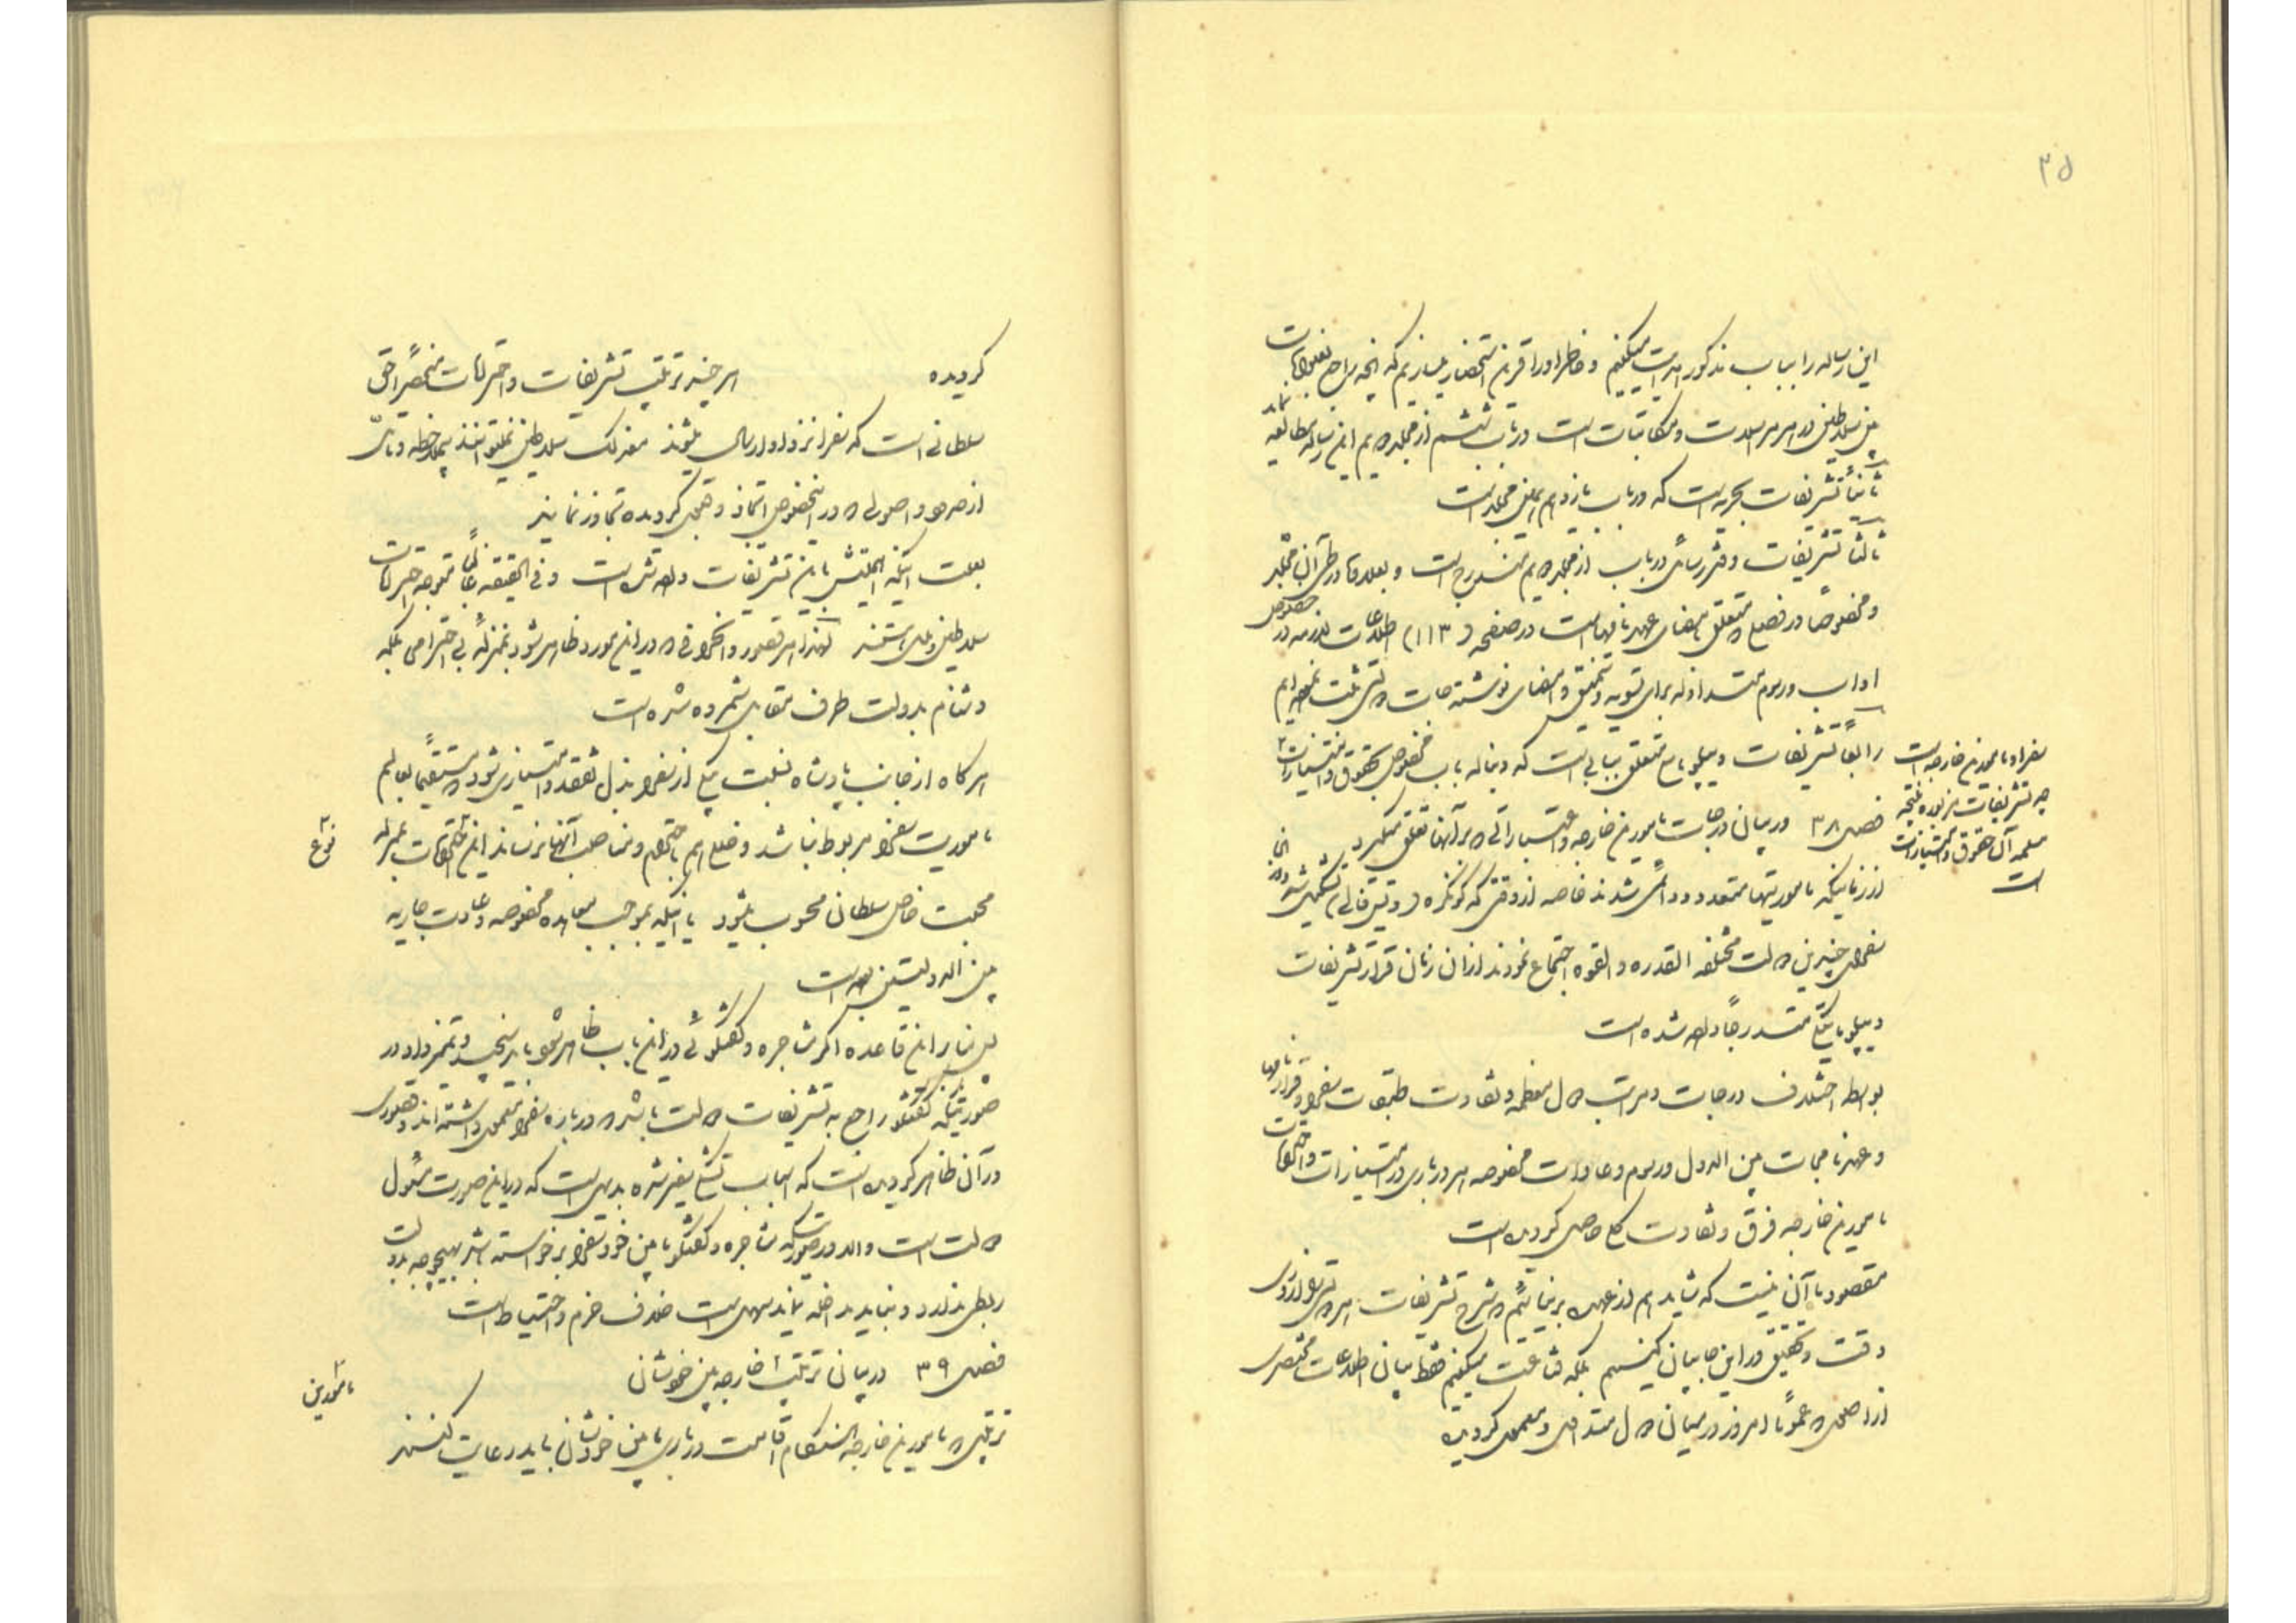 ۳۵
این رساله را بباب مذکور هدایت میکنیم و خاطر او را قرین استحضار میسازیم که آنچه راجع بتعلقات
بین سلاطین در امر مراسلات و مکاتبات است در باب ششم از مجلد دویم این رساله بمطالعه
ثانیاً تشریفات بحریه است که در باب یازدهم همین مجلد است
ثالثاً تشریفات دفتر رسائل در باب از مجلد دویم مندرج است و بعلاوه در طی آن مجلد
و مخصوصاً در فصل متعلق بامضای عهدنامها است در صفحه (۱۱۳) اطلاعات لازمه در خصوص
اداب و رسوم متداوله برای تسویه و تنمیق و امضای نوشته جات دولتی ثبت نموده‌ایم
رابعاً تشریفات دیپلوماسی متعلق ببابی است که دنباله باب مخصوص بحقوق و امتیازات
سفرا و مامورین خارجه است
چه تشریفات مزبوره نتیجه
مکمله آن حقوق و امتیازات
است
فصل ۳۸ در بیان درجات مامورین خارجه و اعتباراتی که بر آنها تعلق میگیرد
از زمانیکه ماموریتها متعدد و دائمی شدند خاصه از وقتی که کونکره (وستفالی) تشکیل شد و در آنجا
سفرای چندین دولت مختلفه القدره و القوه اجتماع نمودند از آن زمان قرار تشریفات
دیپلوماتیکی متدرجاً داده شده است
بواسطه اختلاف درجات و مراتب دول معظمه و تفاوت طبقات سفرا و قراردادها
و عهدنامجات بین الدول و رسوم و عادات مخصوصه هر درباری در امتیازات و احترامات
مامورین خارجه فرق و تفاوت کلی حاصل گردیده است
مقصود ما آن نیست که شاید هم از عهده برنیائیم که شرح تشریفات هر دولتی را از روی
دقت و تحقیق در این جا بیان کنیم بلکه قناعت میکنیم فقط ببیان اطلاعات مختصری
از آن اصولی که عموماً امروز در میان دول متداول و معمول گردیده
گردیده هر چند ترتیب تشریفات و احترامات منحصراً حق
سلطانی است که سفرا نزد او ارسال میشوند معذلک سلاطین نمیتوانند بیملاحظه و تامل
از حدود و اصولی که در اینخصوص اتخاذ و قبول گردیده تجاوز نمایند
بعلت اینکه ایلچیش باین تشریفات داده شده است و فی الحقیقه غالباً متوجه احترامات
سلاطین و ملل هستند لهذا هر قصور و انحرافی که در این مورد ظاهر شود بمنزله بی احترامی بلکه
دشنام بدولت طرف مقابل شمرده شده است
هر گاه از جانب پادشاه نسبت بیکی از سفرا بذل تفقد و امتیازی شود که مستقیماً بعالم
ماموریت سفرا مربوط نباشد و خللی هم باحترام و مناصب آنها نرساند این نوع التفات بمنزله
محبت خاص سلطان محسوب میشود یا اینکه بموجب معاهده مخصوصه و عادت جاریه
بین الدولتین بوده است
پس بنابر این قاعده اگر مشاجره و گفتگوئی در این باب ظاهر شود باید سنجید و تمیز داد در
صورتیکه گفتگو راجع به تشریفات دولت باشد که در باره سفرا معمول داشته‌اند و قصوری
در آن ظاهر گردیده است که اسباب تشکی سفیر شده بدیهی است که در این صورت مسئول
دولت است والا در صورتیکه مشاجره و گفتگو مابین خود سفرا برخاسته باشد بهیچوجه بدولت
ربطی ندارد و نباید مداخله نماید بدیهی است خلاف حزم و احتیاط است
فصل ۳۹ در بیان ترتیب مامورین خارجه بین خودشان
ترتیبی که مامورین خارجه هنگام اقامت درباری مابین خودشان باید رعایت کنند